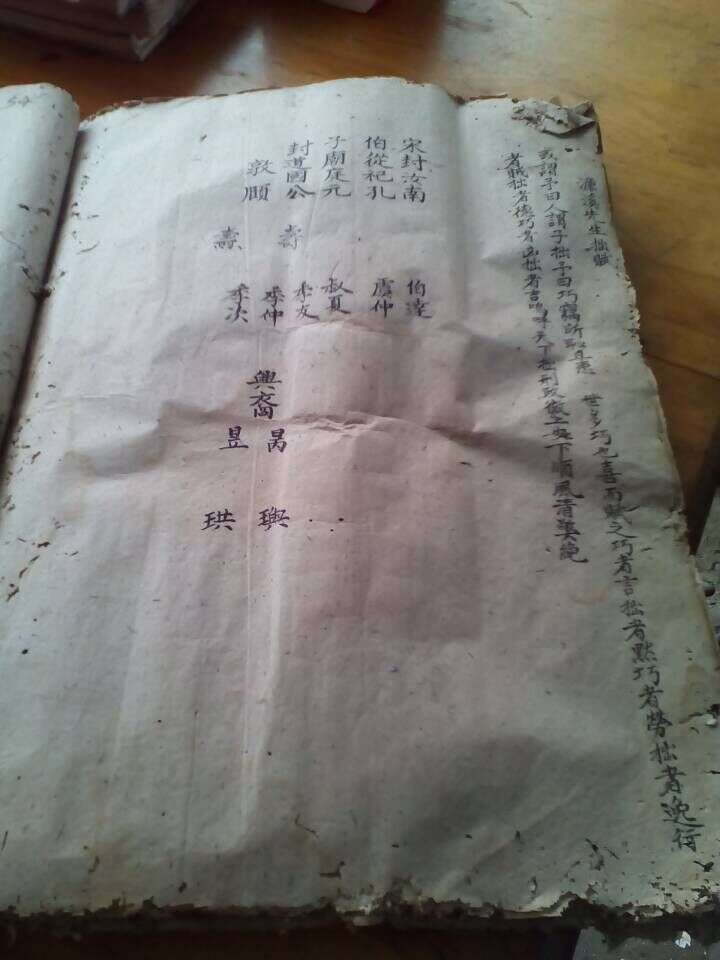 濂溪先生拙賦
或謂予曰人謂子拙予曰巧竊所恥且患 世多巧也喜而賦之巧者言拙者黙巧者勞拙者逸行
者賊拙者德巧者凶拙者吉嗚呼天下拙刑政徹上安下順風清弊絶
宋封汝南
伯從祀孔
子廟庭元
封道國公
敦頤
壽
燾
伯達
虞仲
叔夏
季友
季仲
季次
興裔
昺
昱
璵
珙